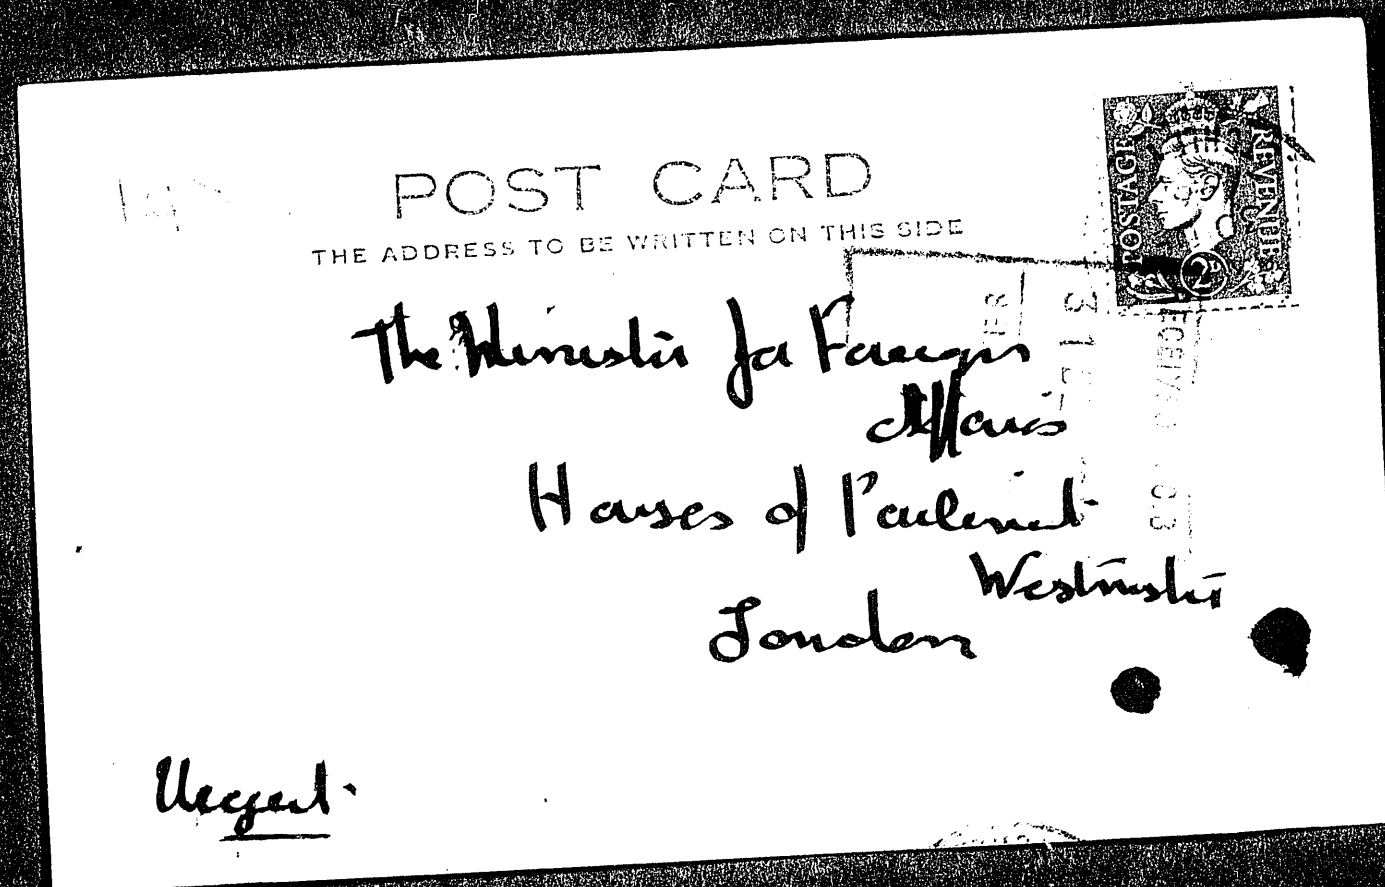 POST CARD
THE ADDRESS TO BE WRITTEN ON THIS SIDE
POSTAGE
REVENUE
2D
The Minister for Foreign
Affairs
Houses of Parliment
Westminster
London
Urgent.